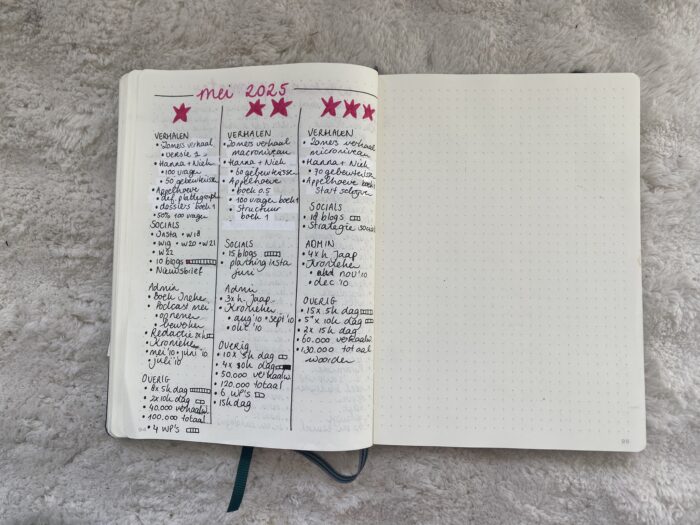 mei 2025
VERHALEN
• Zomers verhaal
• versie 2
• Hanna + Niek
• 100 vragen
• 50 gebeurtenissen
• Appelhoeve
• def. plattegrond
• dossiers boek 1
• 50% 100 vragen
SOCIALS
• Insta • w18
• w19 • w20 • w21
• w22
• 10 blogs
• Nieuwsbrief
Admin
• Boek Ineke
• Podcast mei
• opnemen
• bewerken
• Redactie
• Kronieken
• mei '10 • juni '10
juli '10
OVERIG
• 8x 5k dag
• 2x 10k dag
• 40.000 verhaalw.
• 100.000 totaal
• 4 WP's
VERHALEN
• Zomers verhaal
macroniveau
• Hanna + Niek
• 60 gebeurtenissen
• Appelhoeve
• boek 0.5
• 100 vragen boek 1
• Structuur
boek 1
SOCIALS
• 15 blogs
• planning insta
juni
Admin
• 3x h. Jaap
• Kronieken
• aug '10 • sept '10
• okt '10
OVERIG
• 10 x 5k dag
• 4x 10k dag
• 50.000 verhaalw.
• 120.000 totaal
• 6 WP's
• 15k dag
VERHALEN
• Zomers verhaal
microniveau
• Hanna + Niek
• 70 gebeurtenissen
• Appelhoeve boek 1
Start
SOCIALS
• 18 blogs
• Strategie socials
ADMIN
• 4x h. Jaap
• Kronieken
• nov '10
• dec '10
OVERIG
• 15 x 5k dag
• 5x 10k dag
• 2x 15k dag
• 60.000 verhaalw.
• 130.000 totaal
woorden